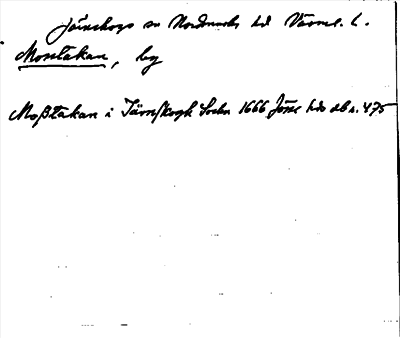 Järnskogs sn Nordmarks hd Värml. l.
Mosstakan, by
Moßtakan i Järnskogh Sochn 1666 Jöne hds db s. 475